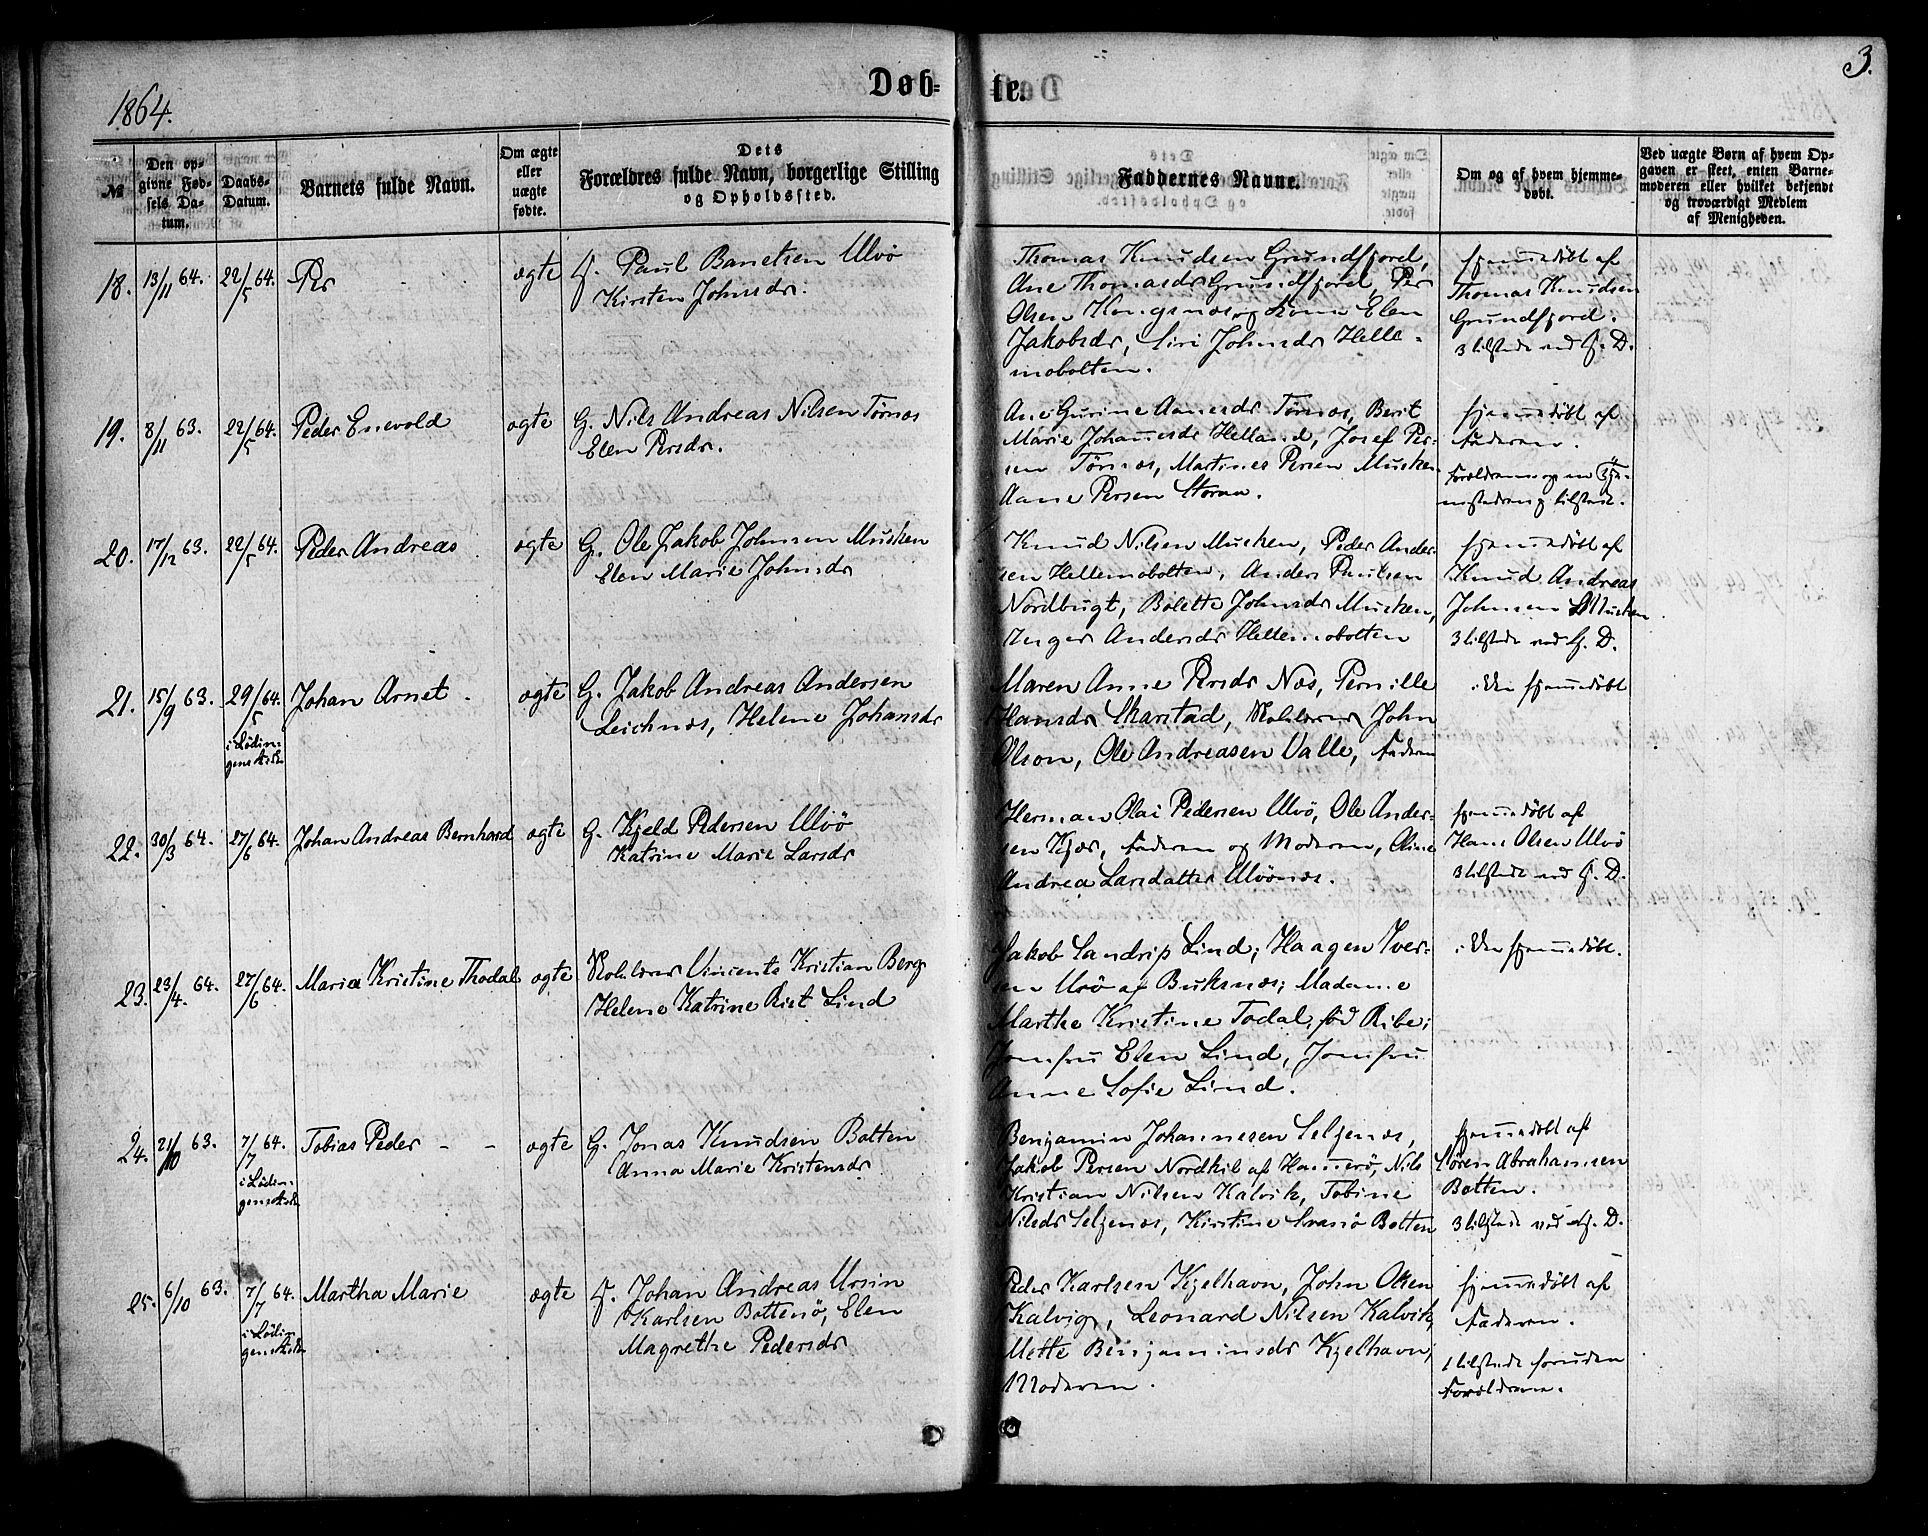 1864.
Døb=
te.
3.
№
Den op=
givne Fød=
sels Da=
tum.
Daabs=
Datum.
Barnets fulde Navn.
Om ægte
eller
uægte
fødte.
Dets
Forældres fulde Navn, borgerlige Stilling
og Opholdssted.
Faddernes Navne.
Om og af hvem hjemme=
døbt.
Ved uægte Børn af hvem Op=
gaven er skeet, enten Barne=
moderen eller hvilket bekjendt
og troværdigt Medlem
af Menigheden.
18. 13/11 64. 22/5 64. Per ægte F. Paul Banetsen Ulvö
Kirsten Johnsdr.
Thomas Knudsen Grundfjord,
Ane Thomasdr Grundfjord, Per
Olsen Kongsnæs og Kone Elen
Jakobsdr, Siri Johnsdr Helle-
mobotten.
hjemmedöbt af
Thomas Knudsen
Grundfjord.
3 tilstede ved Hj. D.
19. 8/11 63. 22/5 64. Peder Enevold ægte G. Nils Andreas Nilsen Tørnæs
Elen Persdr.
Ane Gurine Aanesdr Tørnæs, Berit
Marie Johannesdr Helland, Josef Per-
sen Tørnæs, Martines Persen Musken
Aane Persen Storaa.
hjemmedöbt af
Faderen.
Forældrene og en Tje-
nestedreng tilstede.
20. 17/12 63. 22/5 64. Peder Andreas ægte G. Ole Jakob Johnsen Musken
Elen Marie Johnsdr
Knud Nilsen Musken, Peder Ander-
sen Hellemobotten, Anders Paulsen
Nordbugt, Bolette Johnsdr Musken,
Inger Andersdr Hellemobotten
hjemmedöbt af
Knud Andreas
Johnsen Musken
3 tilstede ved Hj. D.
21. 15/9 63. 29/5 64. Johan Arnet. ægte G. Jakob Andreas Andersen
i Lödin-
gens Kirke
Leichnes, Helene Johansdr
Maren Anne Persdr Næs, Pernille
Hansdr Skarstad, Skolelærer John
Olson, Ole Andreasen Valle, Faderen
i. Den hjemmedöbt
22. 30/3 64. 27/6 64. Johan Andreas Bernhard ægte G. Kjeld Pedersen Ulvö
Katrine Marie Larsdr
Herman Olai Pedersen Ulvö, Ole Ander-
sen Kjær, Faderen og Moderen, Oline
Andrea Larsdatter Ulvönæs.
hjemmedöbt af
Hans Olsen Ulvö
3 tilstede ved Hj. D.
23. 23/4. 64. 27/6 64. Maria Kristine Thodal ægte Skolelærer Vincents Kristian Berg
Helene Katrine Rist Lind
Jakob Sandrip Lind; Haagen Iver-
sen Ulvö af Buksnæs; Madame
Marthe Kristine Todal, fød Ribe;
Jomfru Elen Lind, Jomfru
Anne Sofie Lind.
. Den hjemmedöbt.
24. 21/10 63. 7/7 64. Tobias Peder - - ægte G. Jonas Knudsen Botten
i Lödin-
gens Kirke
Anna Marie Kristensdr
Benjamin Johannesen Seljenæs,
Jakob Persen Nordkil af Hamerö, Nils
Kristian Nilsen Kalvik, Tobine
Nilsdr Seljenæs, Kirstine Svansö Botten
hjemmedöbt af
Sören Abrahamsen
Botten.
3 tilstede ved Hj. D.
25. 6/10 63. 7/7 64. Martha Marie ægte F. Johan Andreas Ursin
i Lödin-
gens Kirke
Karlsen Bottenö, Elen
Magrethe Pedersdr
Peder Karlsen Kjelhavn, John Olsen
Kalvig, Leonard Nilsen Kalvik,
Mette Benjaminsdr Kjelhavn;
Moderen.
hjemmedöbt af
Faderen.
1 tilstede foruden
Forældrene.